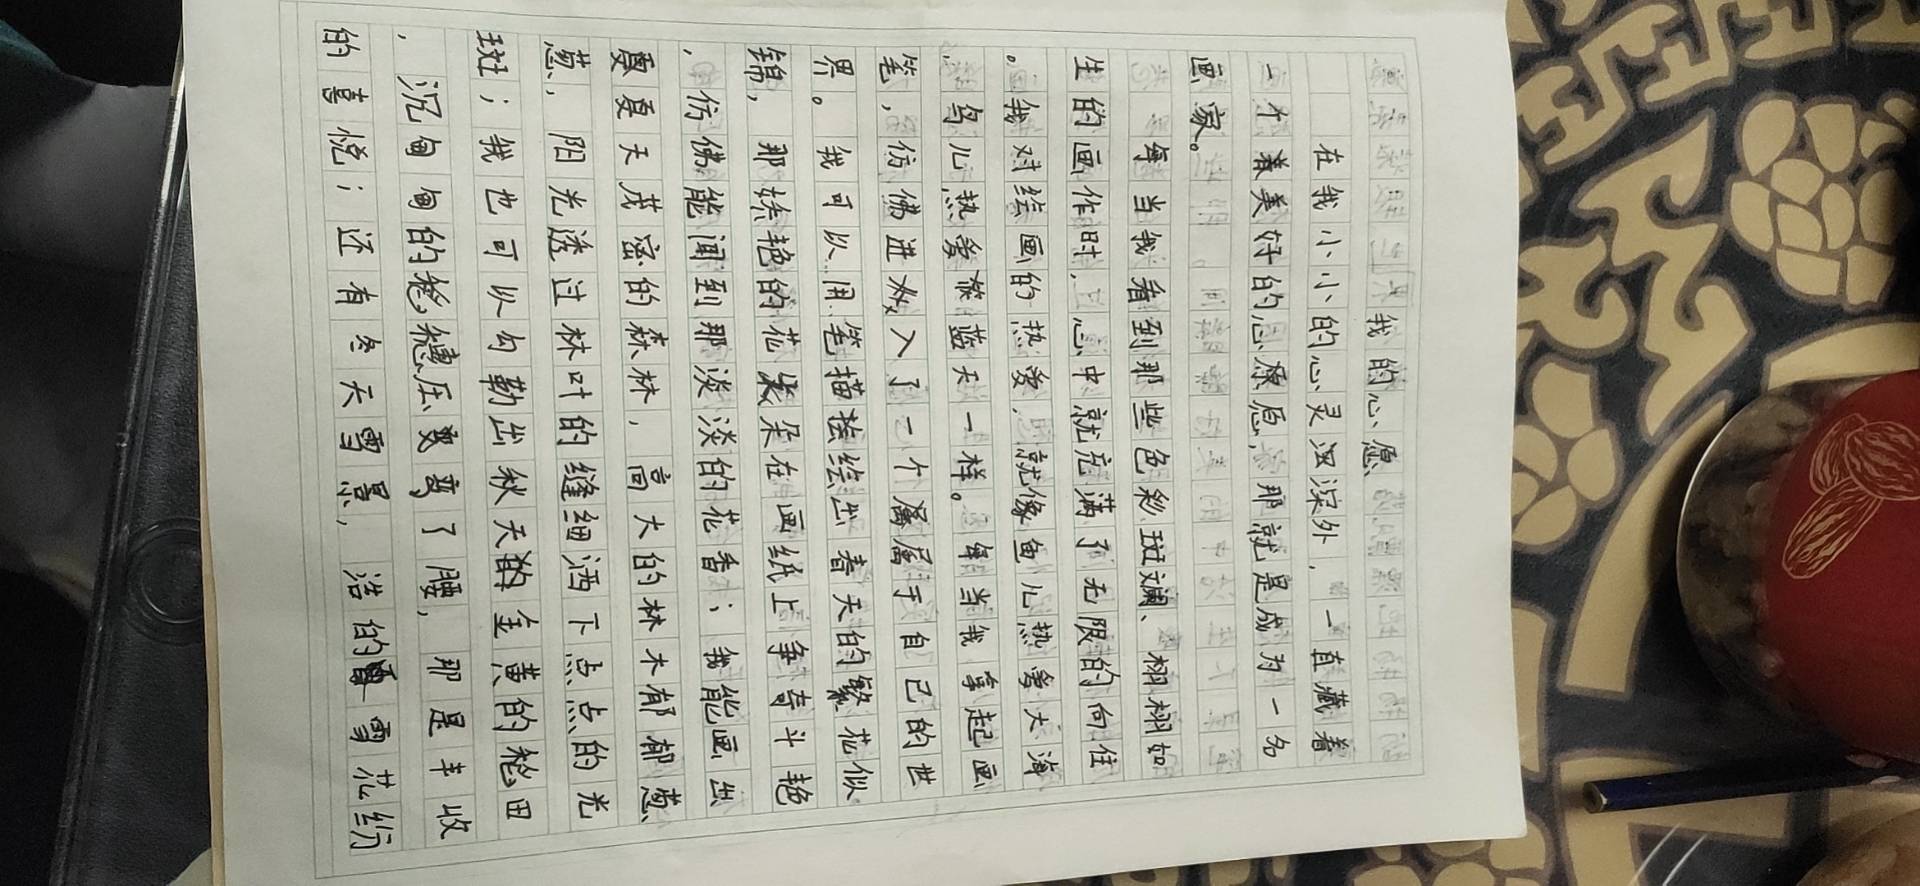 我的心愿
在我小小小的心灵深外，一直藏着
一个着美好的心愿，那就是成为一名
画家。
每当我看到那些色彩斑斓、栩栩如
生的画作时，心中就充满了无限的向往
。我对绘画的热爱，就像鱼儿热爱大海
，鸟儿热爱蓝天一样。每当我拿起画
笔，仿佛进入了一个属于自己的世
界。我可以用笔描绘出春天的繁花似
锦，那娇艳的花朵在画纸上争奇斗艳
，仿佛能闻到那淡淡的花香；我能画出
夏天茂密的森林，高大的林木郁郁葱
葱，阳光透过林叶的缝细洒下点点的光
斑；我也可以勾勒出秋天的金黄的稻田
，沉甸甸的稻穗压弯了腰，那是丰收
的喜悦；还有冬天雪景，洁的雪花纷